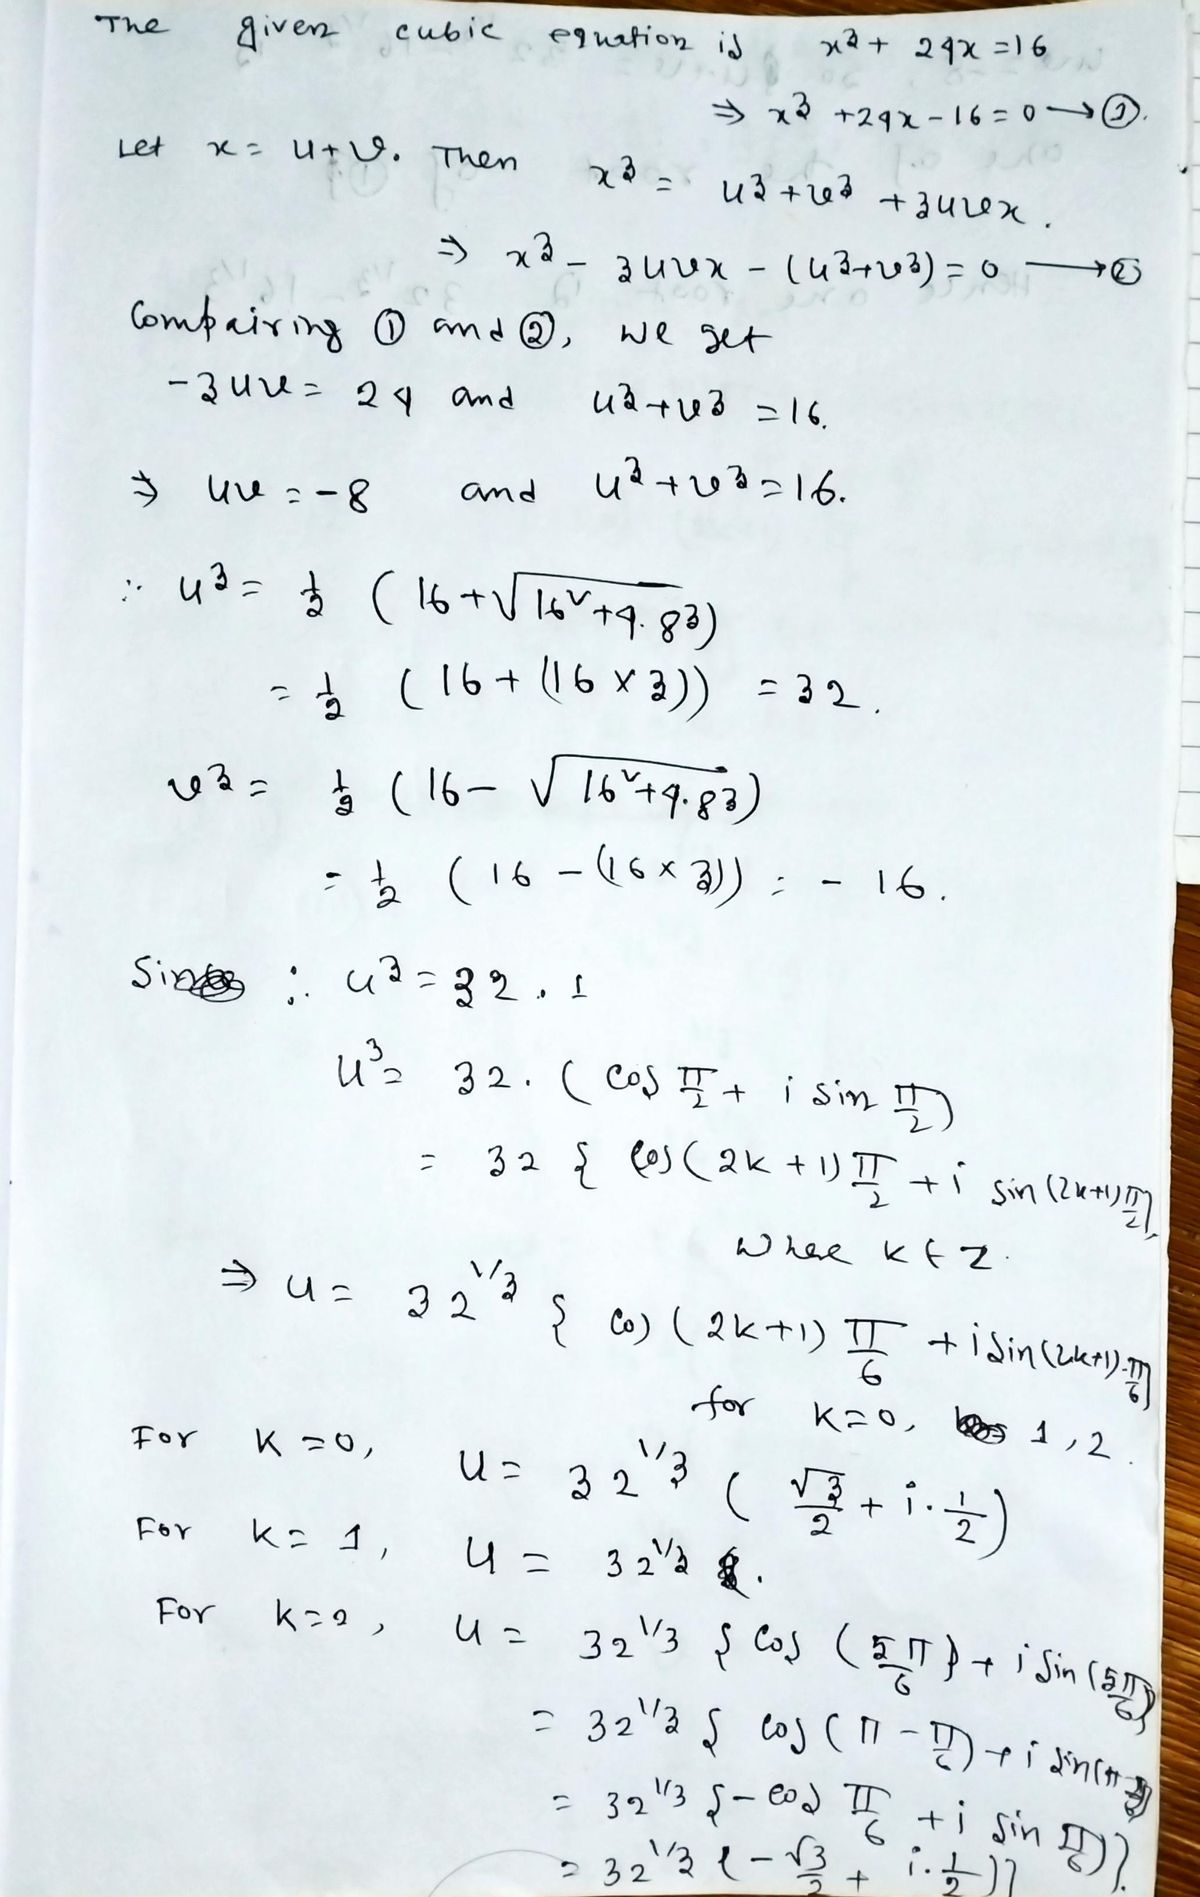 The given cubic equation is x³ + 24x = 16
⇒ x³ + 24x - 16 = 0 → ①.
Let x = u + v. Then x³ = u³ + v³ + 3uvx.
⇒ x³ - 3uvx - (u³+v³) = 0 → ②
Compairing ① and ②, we get
-3uv = 24 and u³+v³ = 16.
⇒ uv = -8 and u³+v³ = 16.
∴ u³ = 1/2 (16 + √16² + 4.8³)
= 1/2 (16 + (16 × 3)) = 32.
v³ = 1/2 (16 - √16² + 4.8³)
= 1/2 (16 - (16 × 3)) = - 16.
∴ u³ = 32 . 1
u³ = 32. (cos π/2 + i sin π/2)
= 32 { cos (2k + 1) π/2 + i sin (2k+1) π/2},
where k ∈ Z.
⇒ u = 32^1/3 { cos (2k+1) π/6 + i sin (2k+1).π/6}
for k=0, 1, 2.
For k = 0, u = 32^1/3 ( √3/2 + i . 1/2 )
For k = 1, u = 32^1/3 .
For k=2, u = 32^1/3 { cos (5π/6) + i sin (5π/6)}
= 32^1/3 { cos (π - π/6) + i sin (π
= 32^1/3 { - cos π/6 + i sin π/6)}.
= 32^1/3 { - √3/2 + i . 1/2 )}